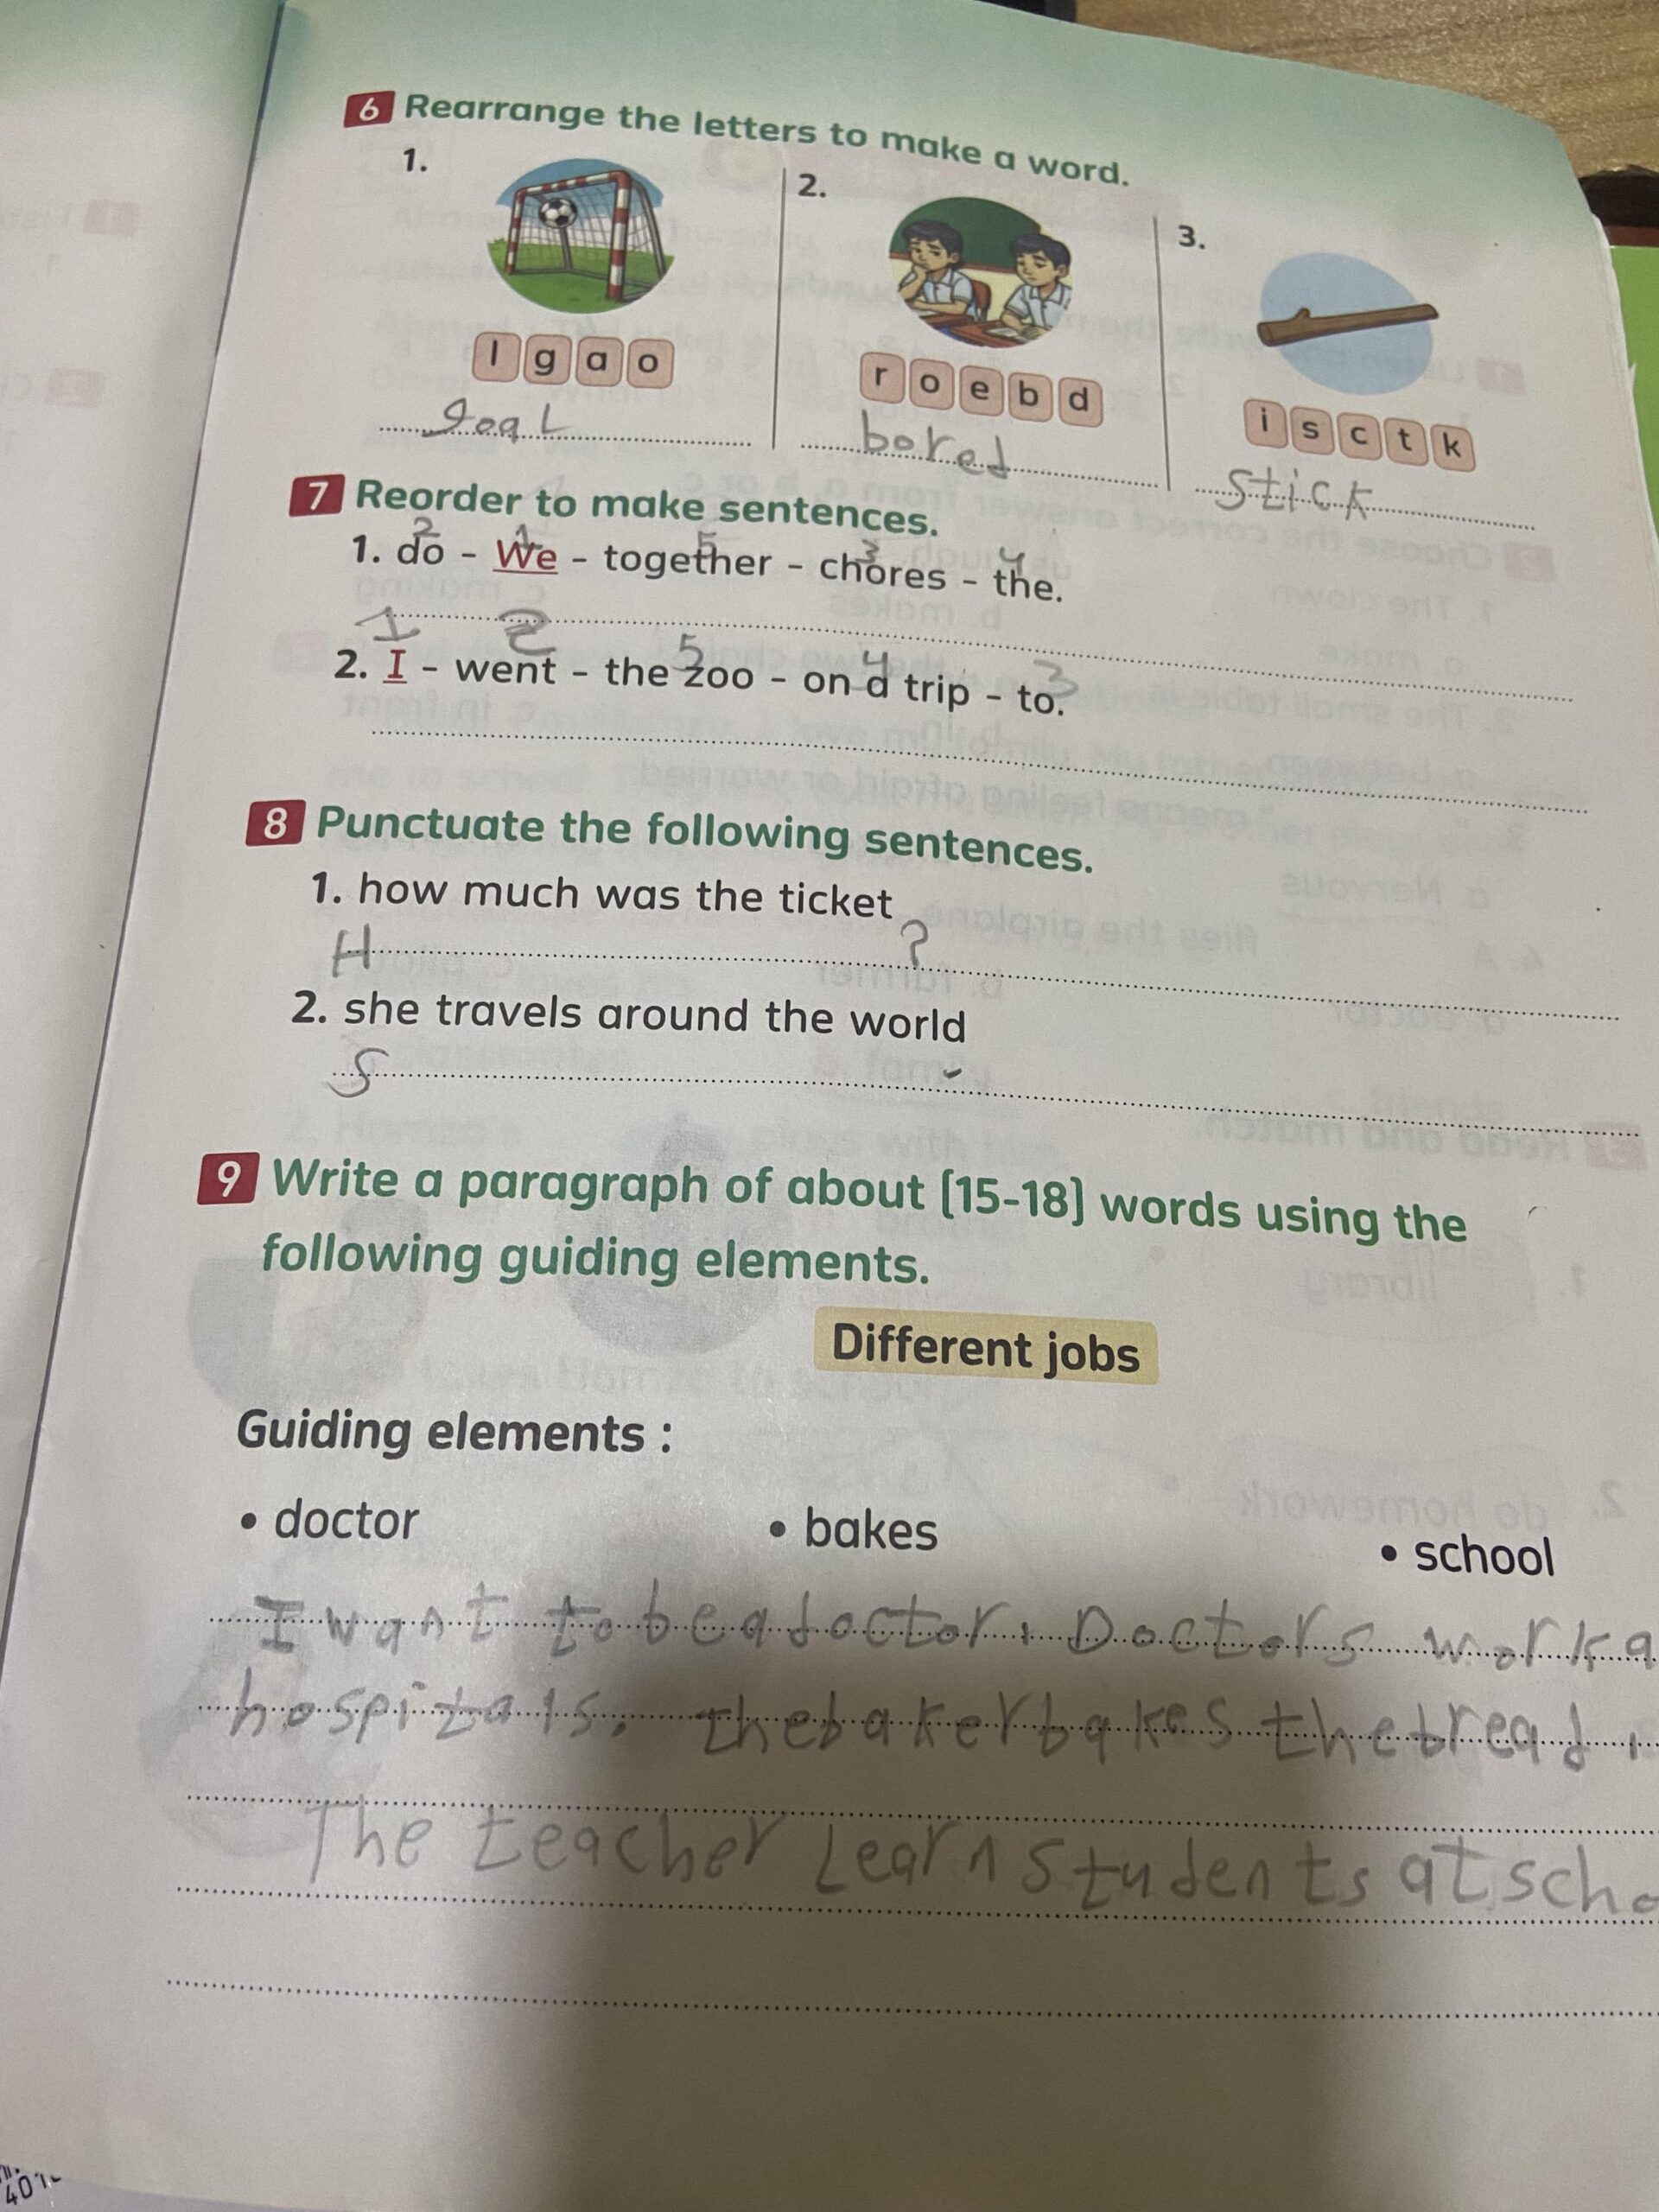 6 Rearrange the letters to make a word.
1. 2. 3.
l g a o
r o e b d
i s c t k
goal
bored
stick
7 Reorder to make sentences.
2 1 5 3 4
1. do - We - together - chores - the.
1 2 5 4 3
2. I - went - the zoo - on a trip - to.
8 Punctuate the following sentences.
1. how much was the ticket
H ?
2. she travels around the world
S
9 Write a paragraph of about [15-18] words using the
following guiding elements.
Different jobs
Guiding elements :
• doctor • bakes • school
I want to be a doctor. Doctors work a
hospitals. the baker bakes the bread.
The teacher Learn students at scho